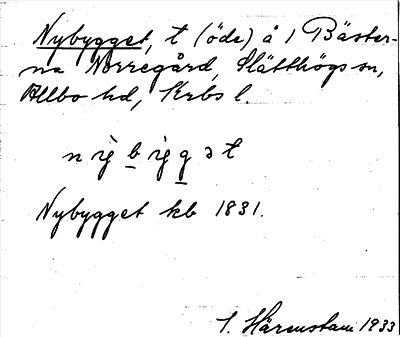 Nybygget, t (öde) å 1 Bäster-
na Norregård, Slätthögs sn,
Allbo hd, Krbs l.
n y̆ b y̆ g ə t
Nybygget kb 1831.
I. Härenstam 1933